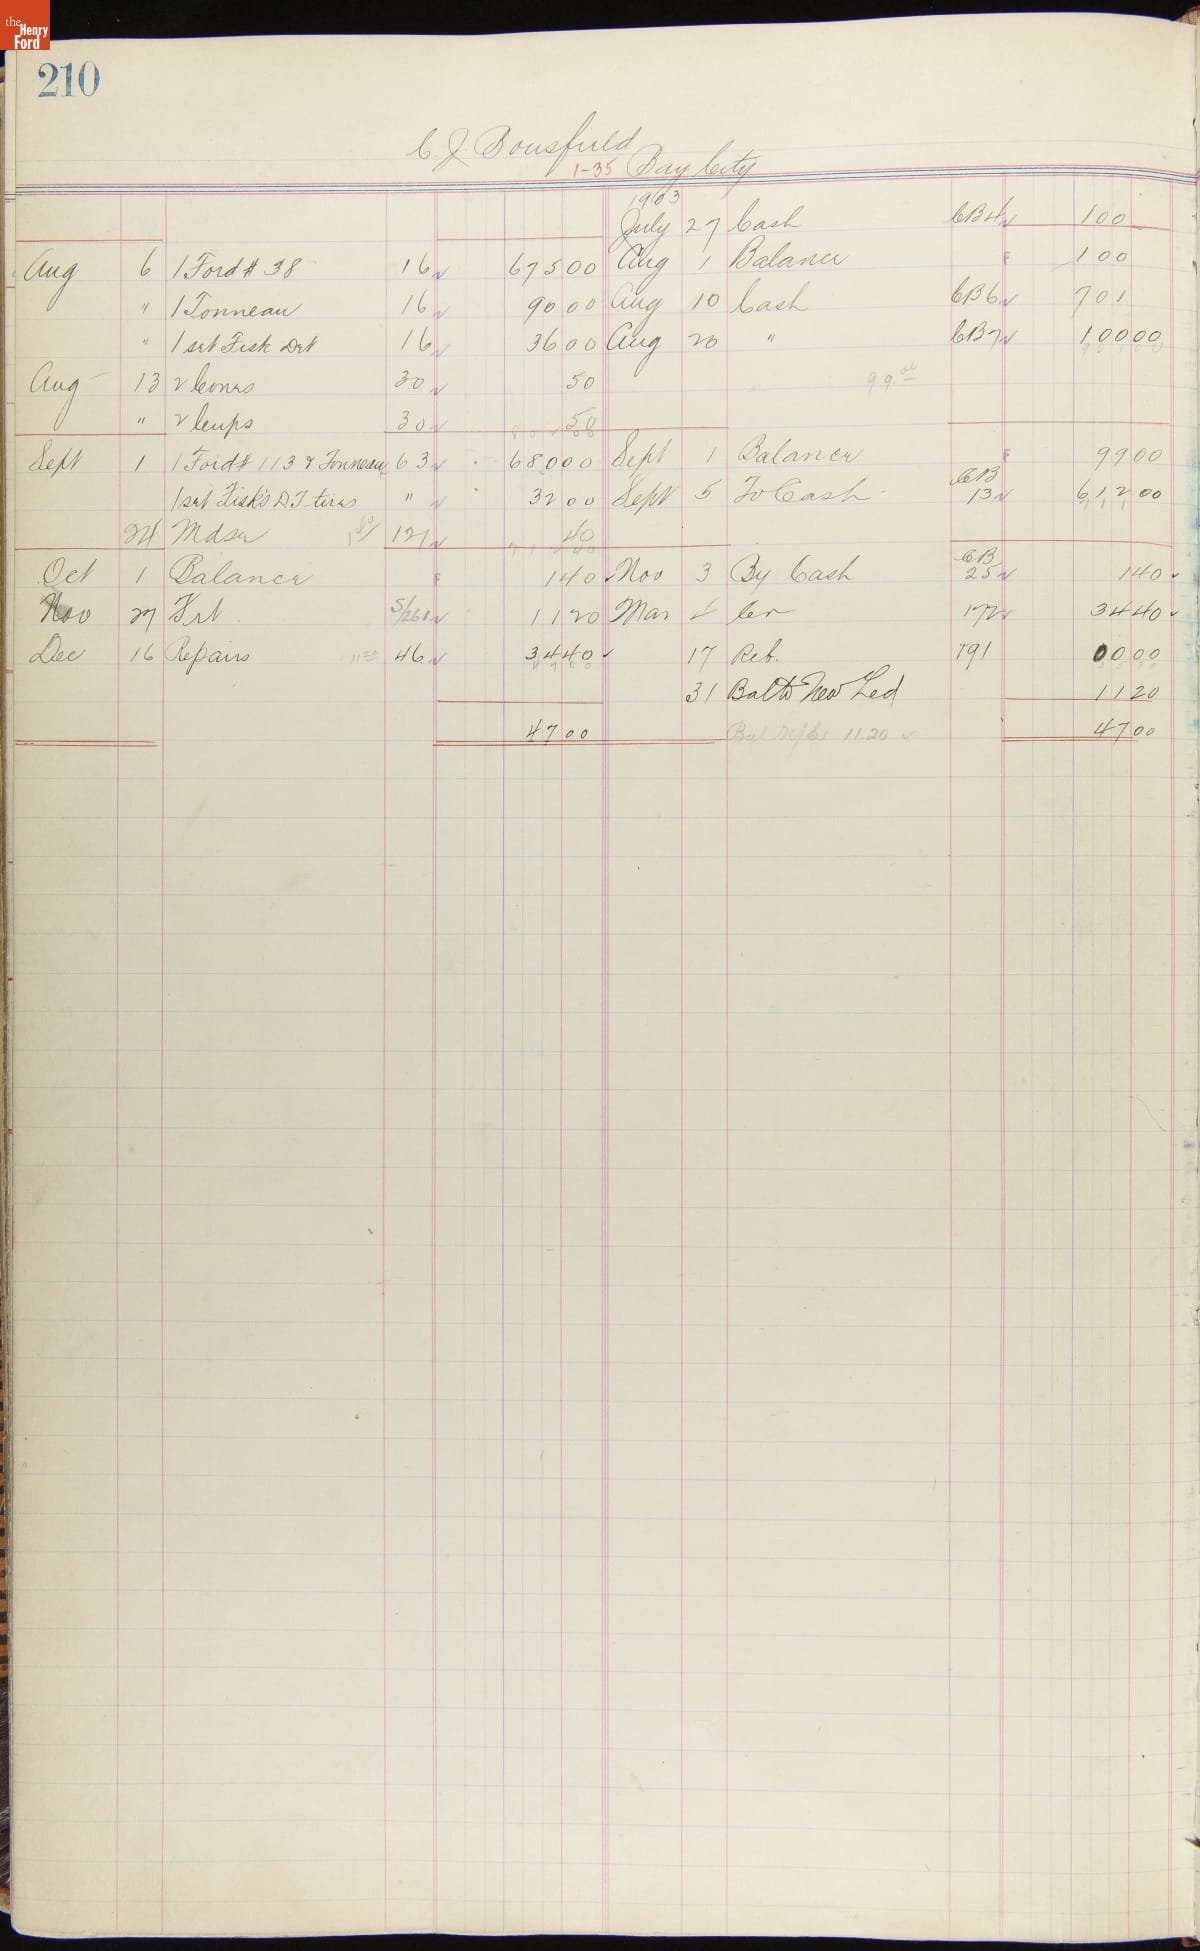 the Henry Ford
210
C. J. Bousfield
1-35 Bay City
1903
July 27 Cash CB4 100
Aug 6 1 Ford # 38 16 67500 Aug 1 Balance F 100
" 1 Tonneau 16 9000 Aug 10 Cash CB6 701
" 1 set Fisk Det 16 3600 Aug 20 " CB7 10000
Aug 13 2 Cones 30 50 99.00
" 2 Cups 30 50
Sept 1 1 Ford # 113 & Tonneau 63 68000 Sept 1 Balance F 9900
1 set Fisk's D.T tires " 3200 Sept 5 To Cash CB 13 61200
24 Mdse 121 40
Oct 1 Balance F 140 Nov 3 By Cash CB 25 140
Nov 27 Frt S/268 1120 Mar Cr 172 3440
Dec 16 Repairs 1120 46 3440 17 Reb. 191 0000
31 Bal to New Led 1120
4700 Bal 1120 4700